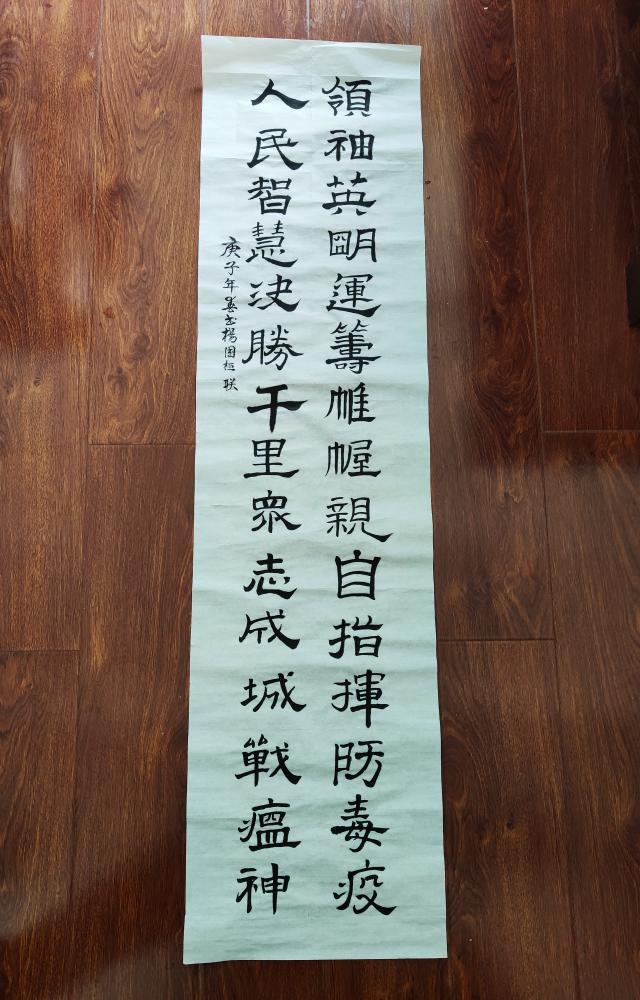 領袖英明運籌帷幄親自指揮防毒疫
人民智慧決勝千里眾志成城戰瘟神
庚子年春書楊國恒联